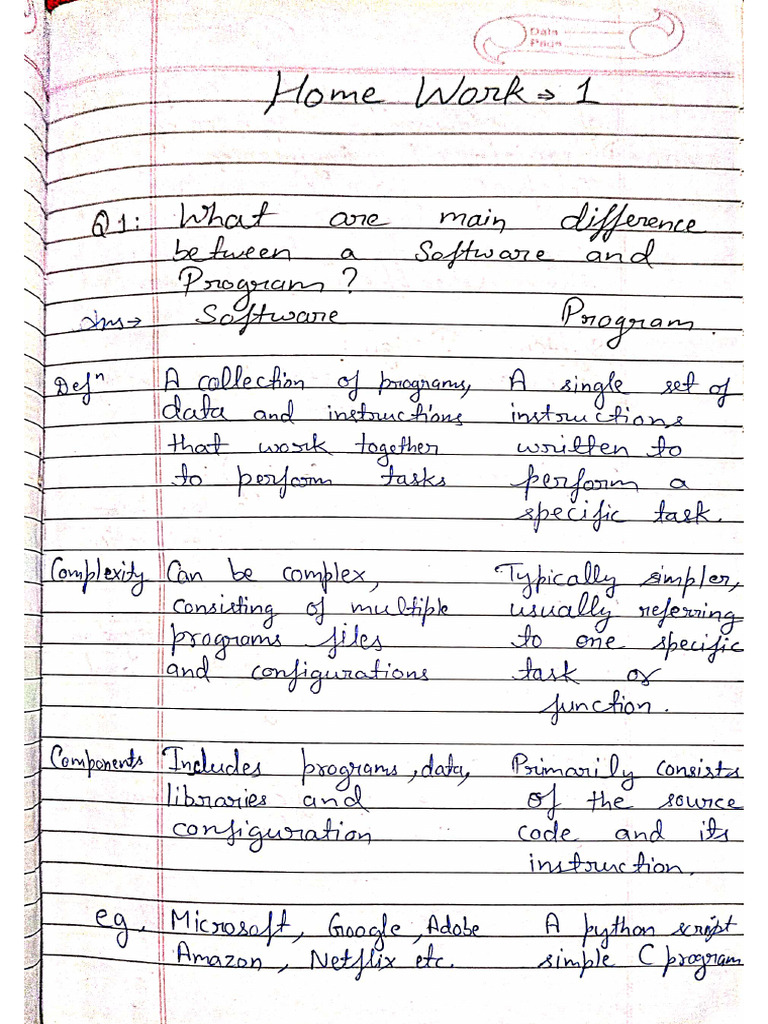 Date
Page
Home Work → 1
Q1: What are main difference
between a Software and
Program?
Ans → Software Program.
Defⁿ A collection of programs, A single set of
data and instructions instructions
that work together written to
to perform tasks perform a
specific task.
Complexity Can be complex, Typically simpler,
consisting of multiple usually referring
programs files to one specific
and configurations task or
function.
Components Includes programs, data, Primarily consists
libraries and of the source
configuration code and its
instruction.
eg. Microsoft, Google, Adobe A python script
Amazon, Netflix etc. simple C program